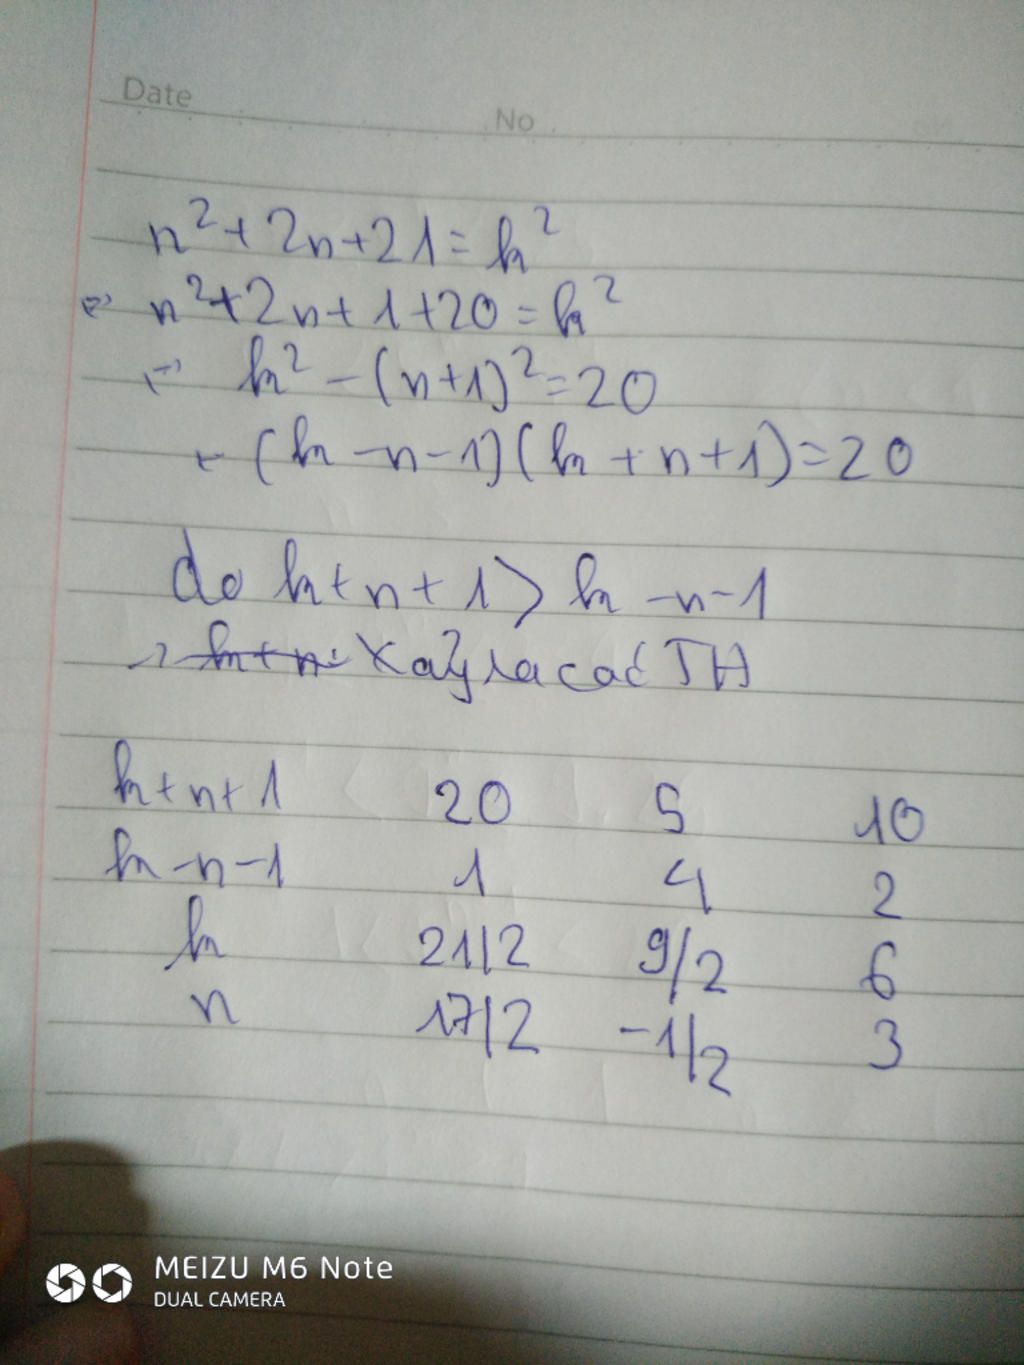 Date
No
n²+2n+21=k²
⇔ n²+2n+1+20=k²
⇔ k²-(n+1)²=20
⇔ (k-n-1)(k+n+1)=20
do k+n+1>k-n-1
→ k+n Xảy ra các TH
k+n+1 20 5 10
k-n-1 1 4 2
k 21/2 9/2 6
n 17/2 -1/2 3
MEIZU M6 Note
DUAL CAMERA